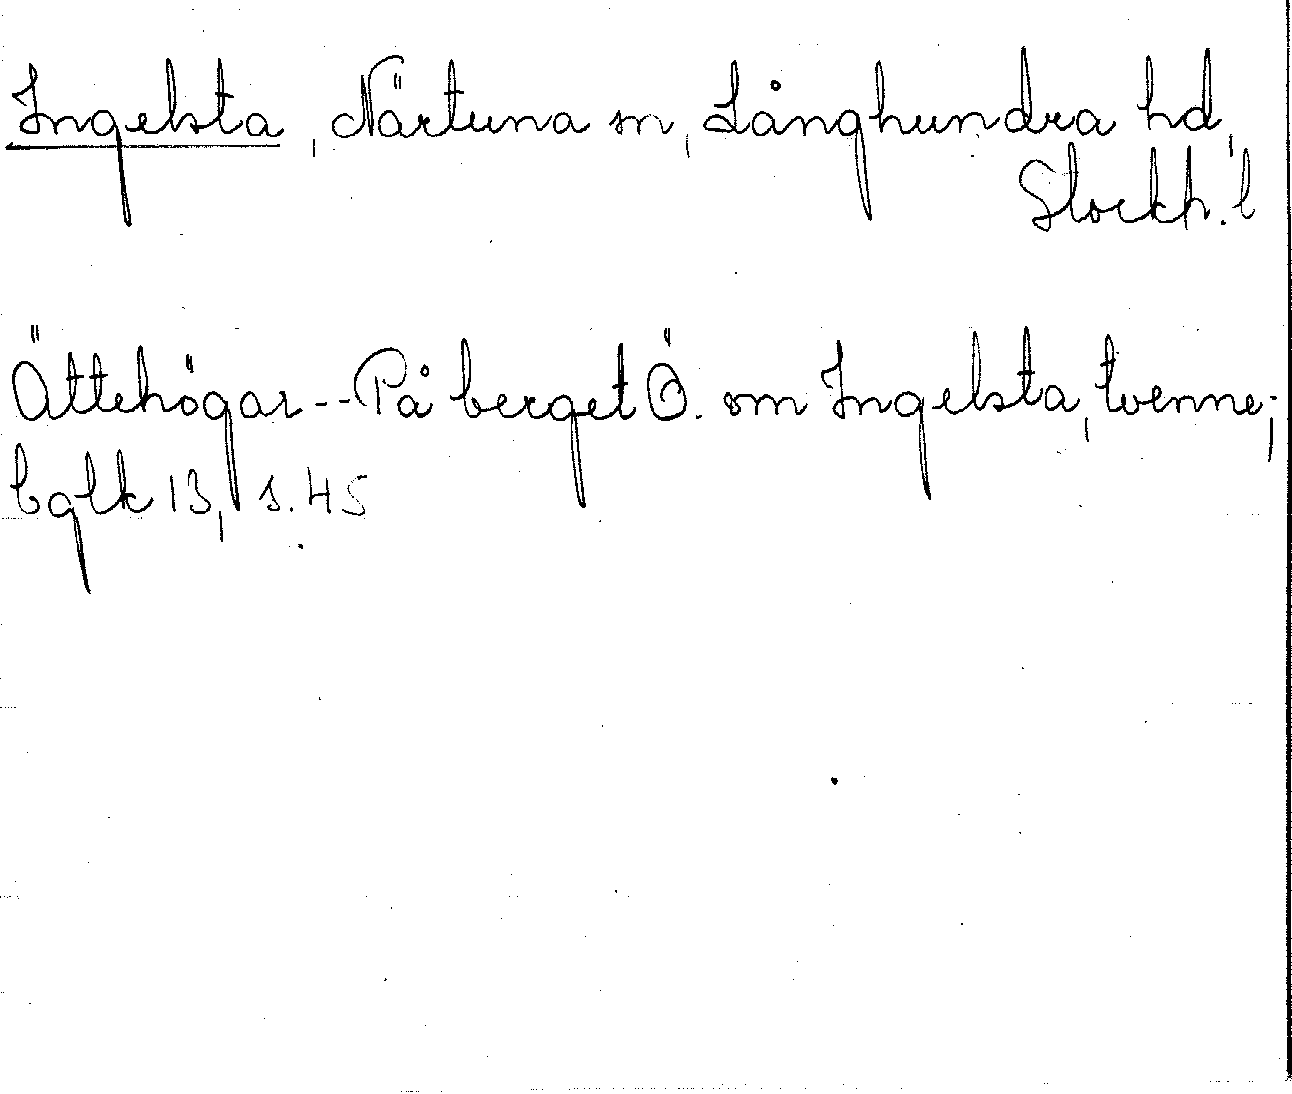 Ingelsta, Närtuna sn, Långhundra hd,
Stockh. l
Ättehögar -- På berget Ö. om Ingelsta, tvenne;
bglk 13, s. 45